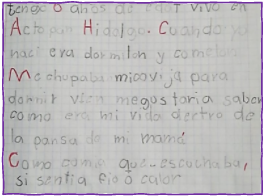 tengo 8 años de edad vivo en
Actopan Hidalgo. Cuando yo
naci era dormilon y comelon
Me chupaba micovija para
dormir vien megostaria saber
como era mi vida dectro de
la pansa de mi mamá
Como comia que escuchaba,
si sentia fio o calor